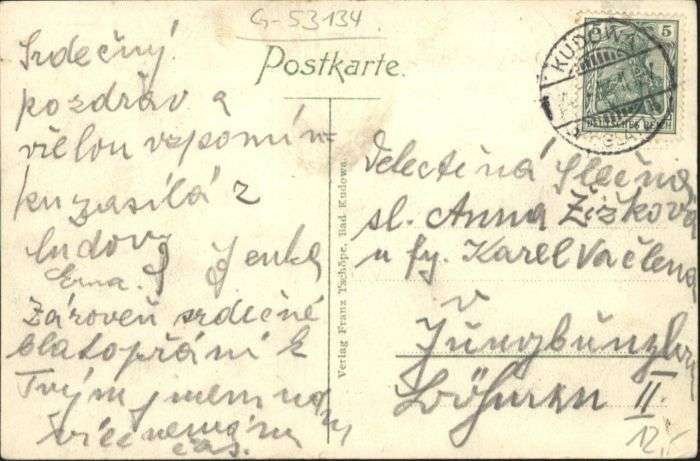 G-53134
Postkarte.
Srdečný
pozdrav a
vřelou vzpomín-
ku zasílá z
Kudovy Jenka
Erna.
Zároveň srdečné
blahopřání k
Tvým jmeninám
více nemám
čas.
Verlag Franz Tschöpe, Bad Kudowa.
KUDOWA
5
DEUTSCHES REICH
Slečna
sl. Anna Žižkova
u fy. Karel Vačlena
v
Jungbunzlau
Böhmen II.
12,-